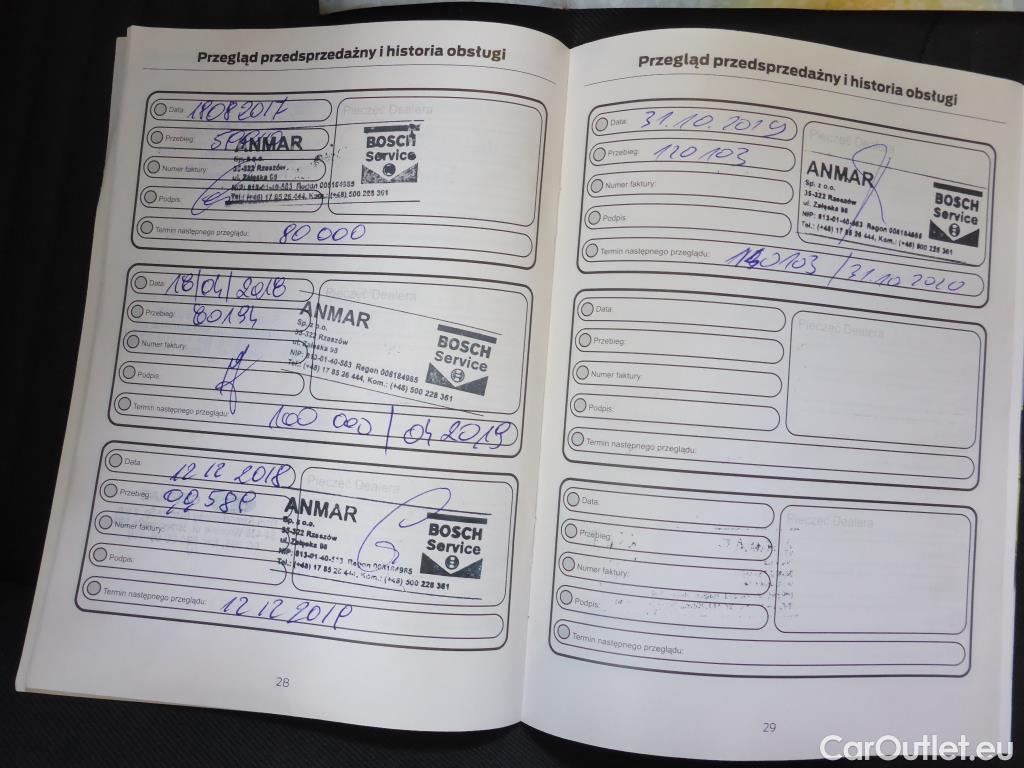 Przegląd przedsprzedażny i historia obsługi
Data: 19082017
Pieczęć Dealera
Przebieg:
ANMAR
BOSCH
Service
Numer faktury:
Sp. z o.o.
35-322 Rzeszów
ul. Załęska 96
NIP: 813-01-40-563 Regon 008184985
Podpis:
Tel.: (+48) 17 85 26 444, Kom.: (+48) 500 228 361
Termin następnego przeglądu: 80 000
Data: 18/04/2018
Pieczęć Dealera
Przebieg: 80194
ANMAR
BOSCH
Service
Numer faktury:
Sp. z o.o.
35-322 Rzeszów
ul. Załęska 96
NIP: 813-01-40-563 Regon 008184985
Tel.: (+48) 17 85 26 444, Kom.: (+48) 500 228 361
Podpis:
Termin następnego przeglądu: 100 000 / 04 2019
Data: 12 12 2018
Pieczęć Dealera
Przebieg: 99589
ANMAR
BOSCH
Service
Numer faktury:
Sp. z o.o.
35-322 Rzeszów
ul. Załęska 96
NIP: 813-01-40-563 Regon 008184985
Tel.: (+48) 17 85 26 444, Kom.: (+48) 500 228 361
Podpis:
Termin następnego przeglądu: 12 12 2019
28
Przegląd przedsprzedażny i historia obsługi
Data: 31.10.2019
Pieczęć Dealera
Przebieg: 120103
ANMAR
BOSCH
Service
Numer faktury:
Sp. z o.o.
35-322 Rzeszów
ul. Załęska 96
NIP: 813-01-40-563 Regon 008184985
Tel.: (+48) 17 85 26 444, Kom.: (+48) 500 228 361
Podpis:
Termin następnego przeglądu: 140103 / 31.10.2020
Data:
Pieczęć Dealera
Przebieg:
Numer faktury:
Podpis:
Termin następnego przeglądu:
Data:
Pieczęć Dealera
Przebieg:
Numer faktury:
Podpis:
Termin następnego przeglądu:
29
CarOutlet.eu